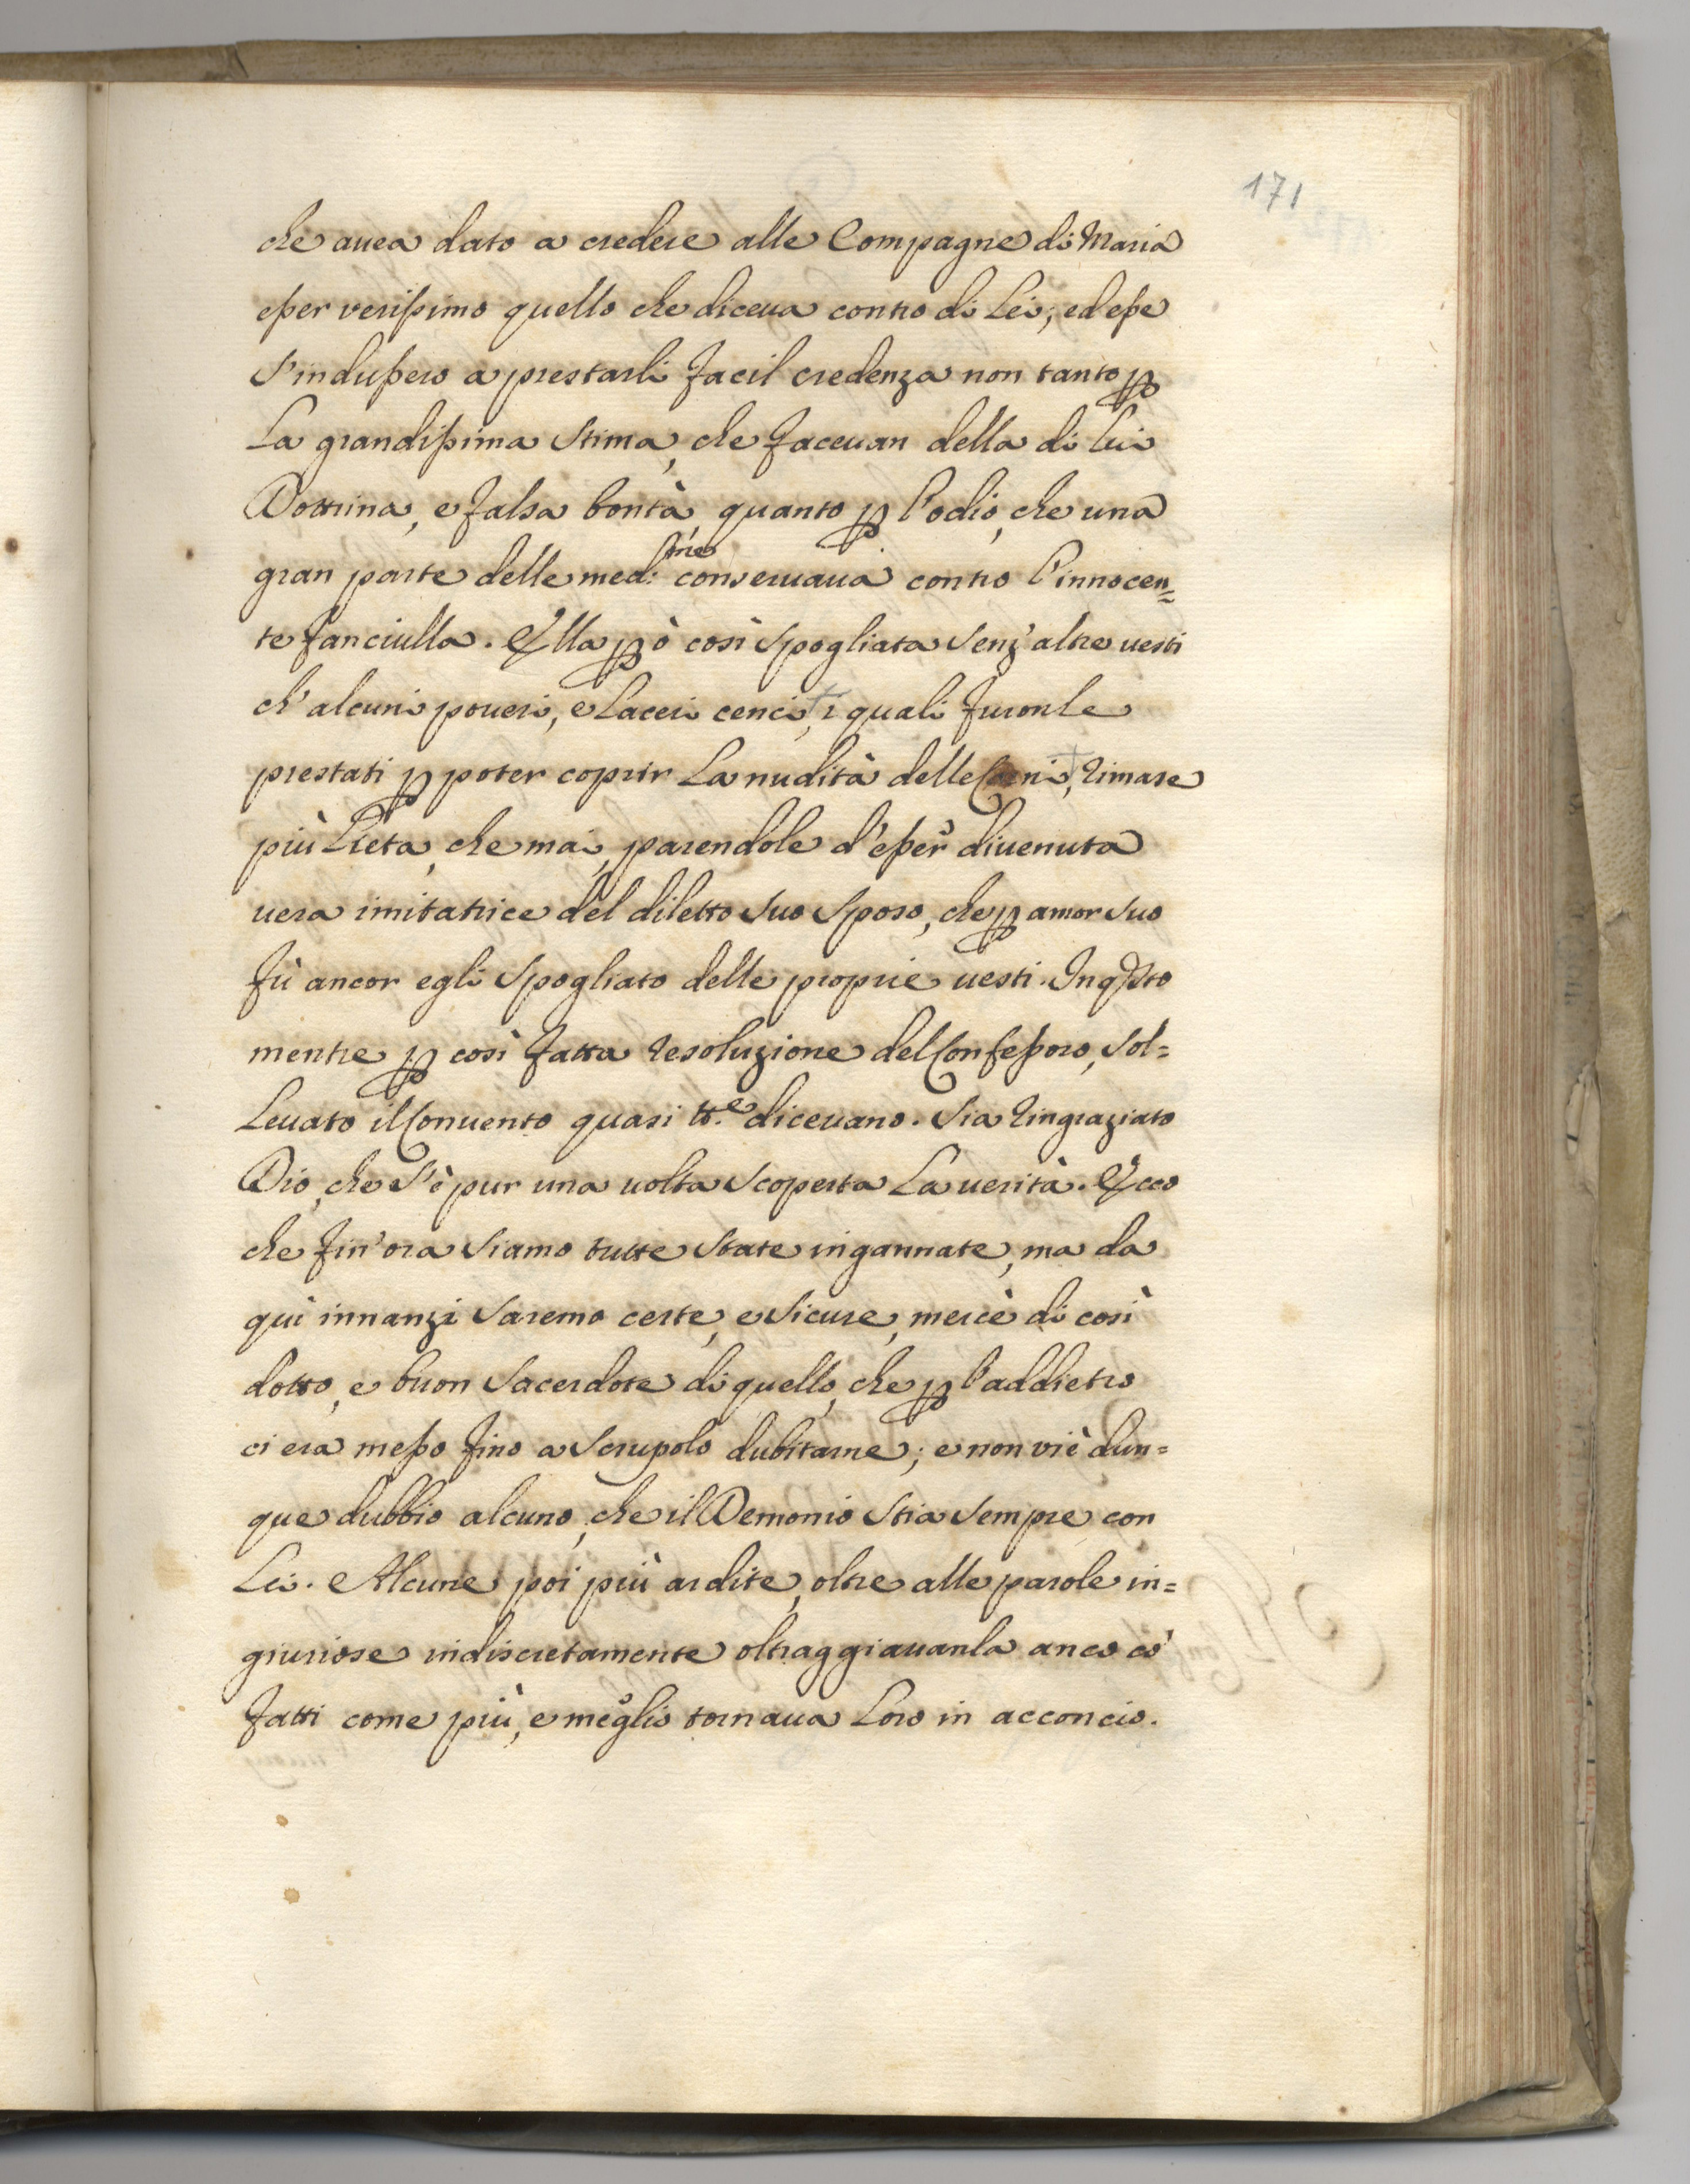 171
che auea dato a credere alle Compagne di Maria
eßer verißimo quello che diceua contro di Lei; ed eße
s'indußero a prestarli facil credenza non tanto ꝑ
La grandißima stima, che faceuan della di lui
Dottrina, e falsa bontà, quanto ꝑ l'odio, che una
gran parte delle med:ᵐᵉ conseruaua contro l'innocen=
te fanciulla. Ella ꝑò così spogliata senz'altre uesti
ch'alcuni poueri, e Laceri cenci, i quali furonle
prestati ꝑ poter coprir La nudità delle Carni, rimase
più Lieta, che mai, parendole d'eßer diuenuta
uera imitatrice del diletto suo sposo, che ꝑ amor suo
fù ancor egli spogliato delle proprie uesti. In qsto
mentre ꝑ così fatta resoluzione del Confeßoro, sol=
Leuato il Conuento quasi tt.ᵉ diceuano. Sia ringraziato
Dio, che s'è pur una uolta scoperta La uerità. Ecco
che fin'ora siamo tutte state ingannate, ma da
quì innanzi saremo certe, e sicure, mercè di così
dotto, e buon sacerdote di quello, che ꝑ l'addietro
ci era meßo fino a scrupolo dubitarne; e non vi è dun=
que dubbio alcuno, che il Demonio stia sempre con
Lei. Alcune poi più ardite, oltre alle parole in=
giuriose indiscretamente oltraggiauanla anco có
fatti come più, e meglio tornaua Loro in acconcio.